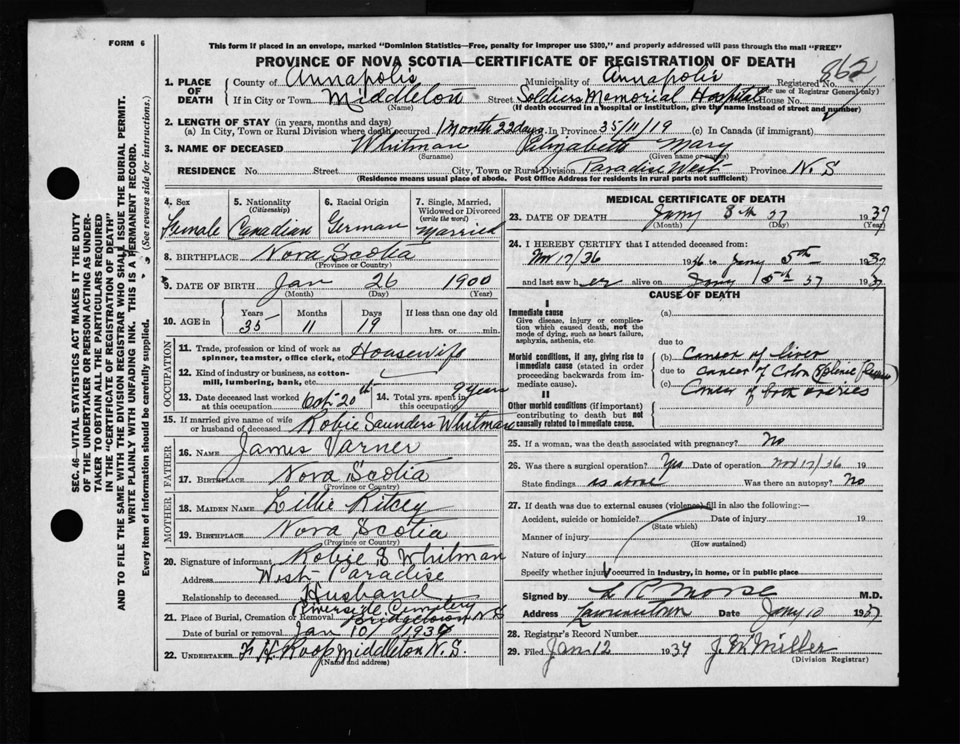 FORM 6
This form if placed in an envelope, marked "Dominion Statistics—Free, penalty for improper use $300," and properly addressed will pass through the mail "FREE"
PROVINCE OF NOVA SCOTIA—CERTIFICATE OF REGISTRATION OF DEATH
1. PLACE OF DEATH
County of Annapolis Municipality of Annapolis Registered No. 862
(For use of Registrar General only)
If in City or Town Middleton Street Soldiers Memorial Hospital House No.
(Name) (If death occurred in a hospital or institution, give the name instead of street and number)
2. LENGTH OF STAY (in years, months and days)
(a) In City, Town or Rural Division where death occurred 1 Month 22 days (b) In Province 35/11/19 (c) In Canada (if immigrant)
3. NAME OF DECEASED Whitman Elizabeth Mary
(Surname) (Given name or names)
RESIDENCE No. Street City, Town or Rural Division Paradise West Province N.S
(Residence means usual place of abode. Post Office Address for residents in rural parts not sufficient)
4. Sex Female
5. Nationality (Citizenship) Canadian
6. Racial Origin German
7. Single, Married, Widowed or Divorced (write the word) Married
8. BIRTHPLACE Nova Scotia
(Province or Country)
9. DATE OF BIRTH Jan 26 1900
(Month) (Day) (Year)
10. AGE in Years 35 Months 11 Days 19 If less than one day old hrs. or min.
OCCUPATION
11. Trade, profession or kind of work as spinner, teamster, office clerk, etc. Housewife
12. Kind of industry or business, as cotton-mill, lumbering, bank, etc.
13. Date deceased last worked at this occupation Oct 20th
14. Total yrs. spent in this occupation 9 years
15. If married give name of wife or husband of deceased Robie Saunders Whitman
FATHER
16. NAME James Varner
17. BIRTHPLACE Nova Scotia
(Province or Country)
MOTHER
18. MAIDEN NAME Lillie Ritcey
19. BIRTHPLACE Nova Scotia
(Province or Country)
20. Signature of informant Robie S Whitman
Address West Paradise
Relationship to deceased Husband
21. Place of Burial, Cremation or Removal Riverside Cemetery Bridgetown N S
Date of burial or removal Jan 10 1937
22. UNDERTAKER F H Roop Middleton N.S.
(Name and address)
MEDICAL CERTIFICATE OF DEATH
23. DATE OF DEATH Jany 8th 37 1937
(Month) (Day)
24. I HEREBY CERTIFY that I attended deceased from:
Nov 17/36 1936 to Jany 5th 1937
and last saw her alive on Jany 5th 37 1937
CAUSE OF DEATH
I
Immediate cause
Give disease, injury or complication which caused death, not the mode of dying, such as heart failure, asphyxia, asthenia, etc.
(a)
due to
Morbid conditions, if any, giving rise to immediate cause (stated in order proceeding backwards from immediate cause).
(b) Cancer of liver
due to Cancer of Colon
(c) Cancer of both ovaries
II
Other morbid conditions (if important) contributing to death but not causally related to immediate cause.
25. If a woman, was the death associated with pregnancy? No
26. Was there a surgical operation? Yes Date of operation Nov 17/36 19
State findings as above Was there an autopsy? No
27. If death was due to external causes (violence) fill in also the following:—
Accident, suicide or homicide? Date of injury 19
(State which)
Manner of injury
(How sustained)
Nature of injury
Specify whether injury occurred in industry, in home, or in public place
Signed by L R Morse M.D.
Address Lawrencetown Date Jany 10 1937
28. Registrar's Record Number
29. Filed Jan 12 1937 J. W. Miller
(Division Registrar)
SEC. 46—VITAL STATISTICS ACT MAKES IT THE DUTY
OF THE UNDERTAKER OR PERSON ACTING AS UNDER-
TAKER TO OBTAIN ALL THE PARTICULARS REQUIRED
IN THE "CERTIFICATE OF REGISTRATION OF DEATH"
AND TO FILE THE SAME WITH THE DIVISION REGISTRAR WHO SHALL ISSUE THE BURIAL PERMIT.
WRITE PLAINLY WITH UNFADING INK. THIS IS A PERMANENT RECORD.
Every item of information should be carefully supplied. (See reverse side for instructions.)